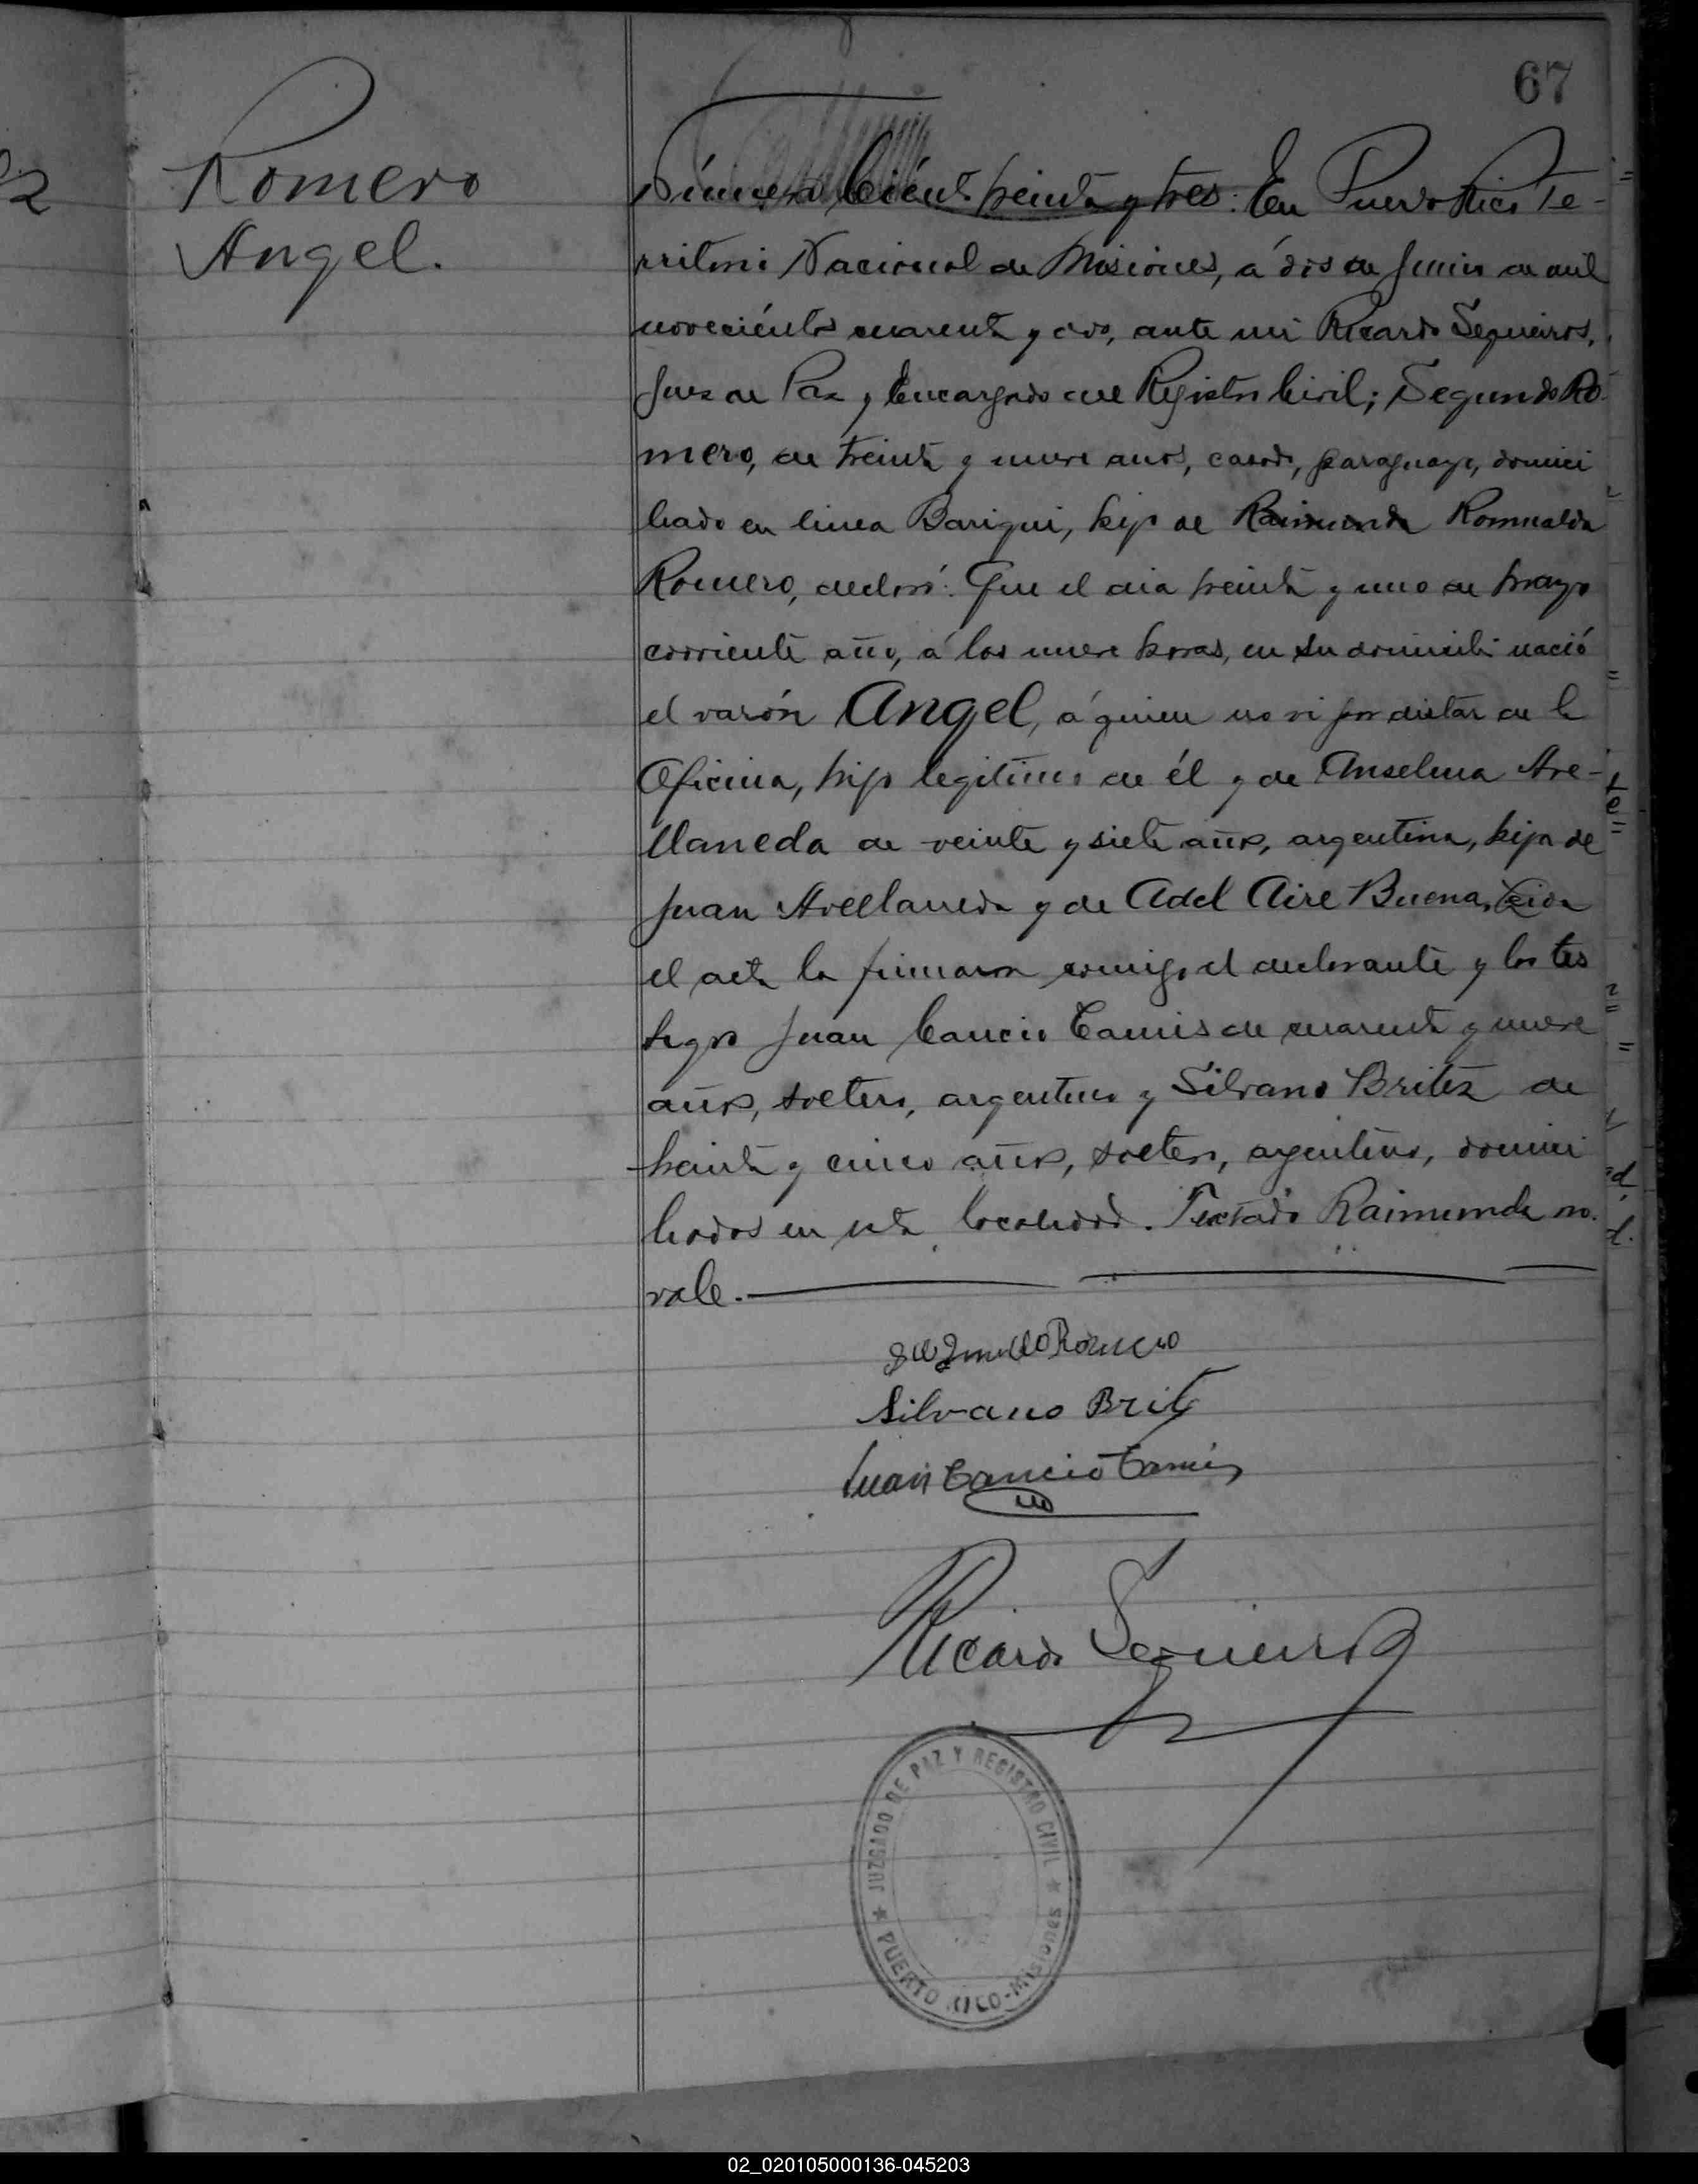 67
Romero
Angel.
Número Ciento treinta y tres: En Puerto Rico Te-
rritorio Nacional de Misiones, á dos de Junio de mil
novecientos cuarenta y dos, ante mi Ricardo Sequeiros,
Juez de Paz y Encargado del Registro Civil; Segundo Ro-
mero, de treinta y nueve años, casado, paraguayo, domici
liado en linea Bariqui, hijo de Raimunda Romualda
Romero, declaró: Que el dia treinta y uno de mayo
corriente año, á las nueve horas, en su domicilio nació
el varón Angel, á quien no vi por distar de la
Oficina, hijo legitimo de él y de Anselma Ave-
llaneda de veinte y siete años, argentina, hija de
Juan Avellaneda y de Adel Aire Buena. Leida
el acta la firmaron conmigo el declarante y los tes
tigos Juan Cancio Tamis de cuarenta y nueve
años, soltero, argentino y Silvano Britez de
treinta y cinco años, soltero, argentino, domici
liados en esta localidad. Testado Raimunda no.
vale.
Segundo Romero
Silvano Britz
Juan Cancio Tamis
Ricardo Sequeiros
JUZGADO DE PAZ Y REGISTRO CIVIL
PUERTO RICO - Misiones
02_020105000136-045203